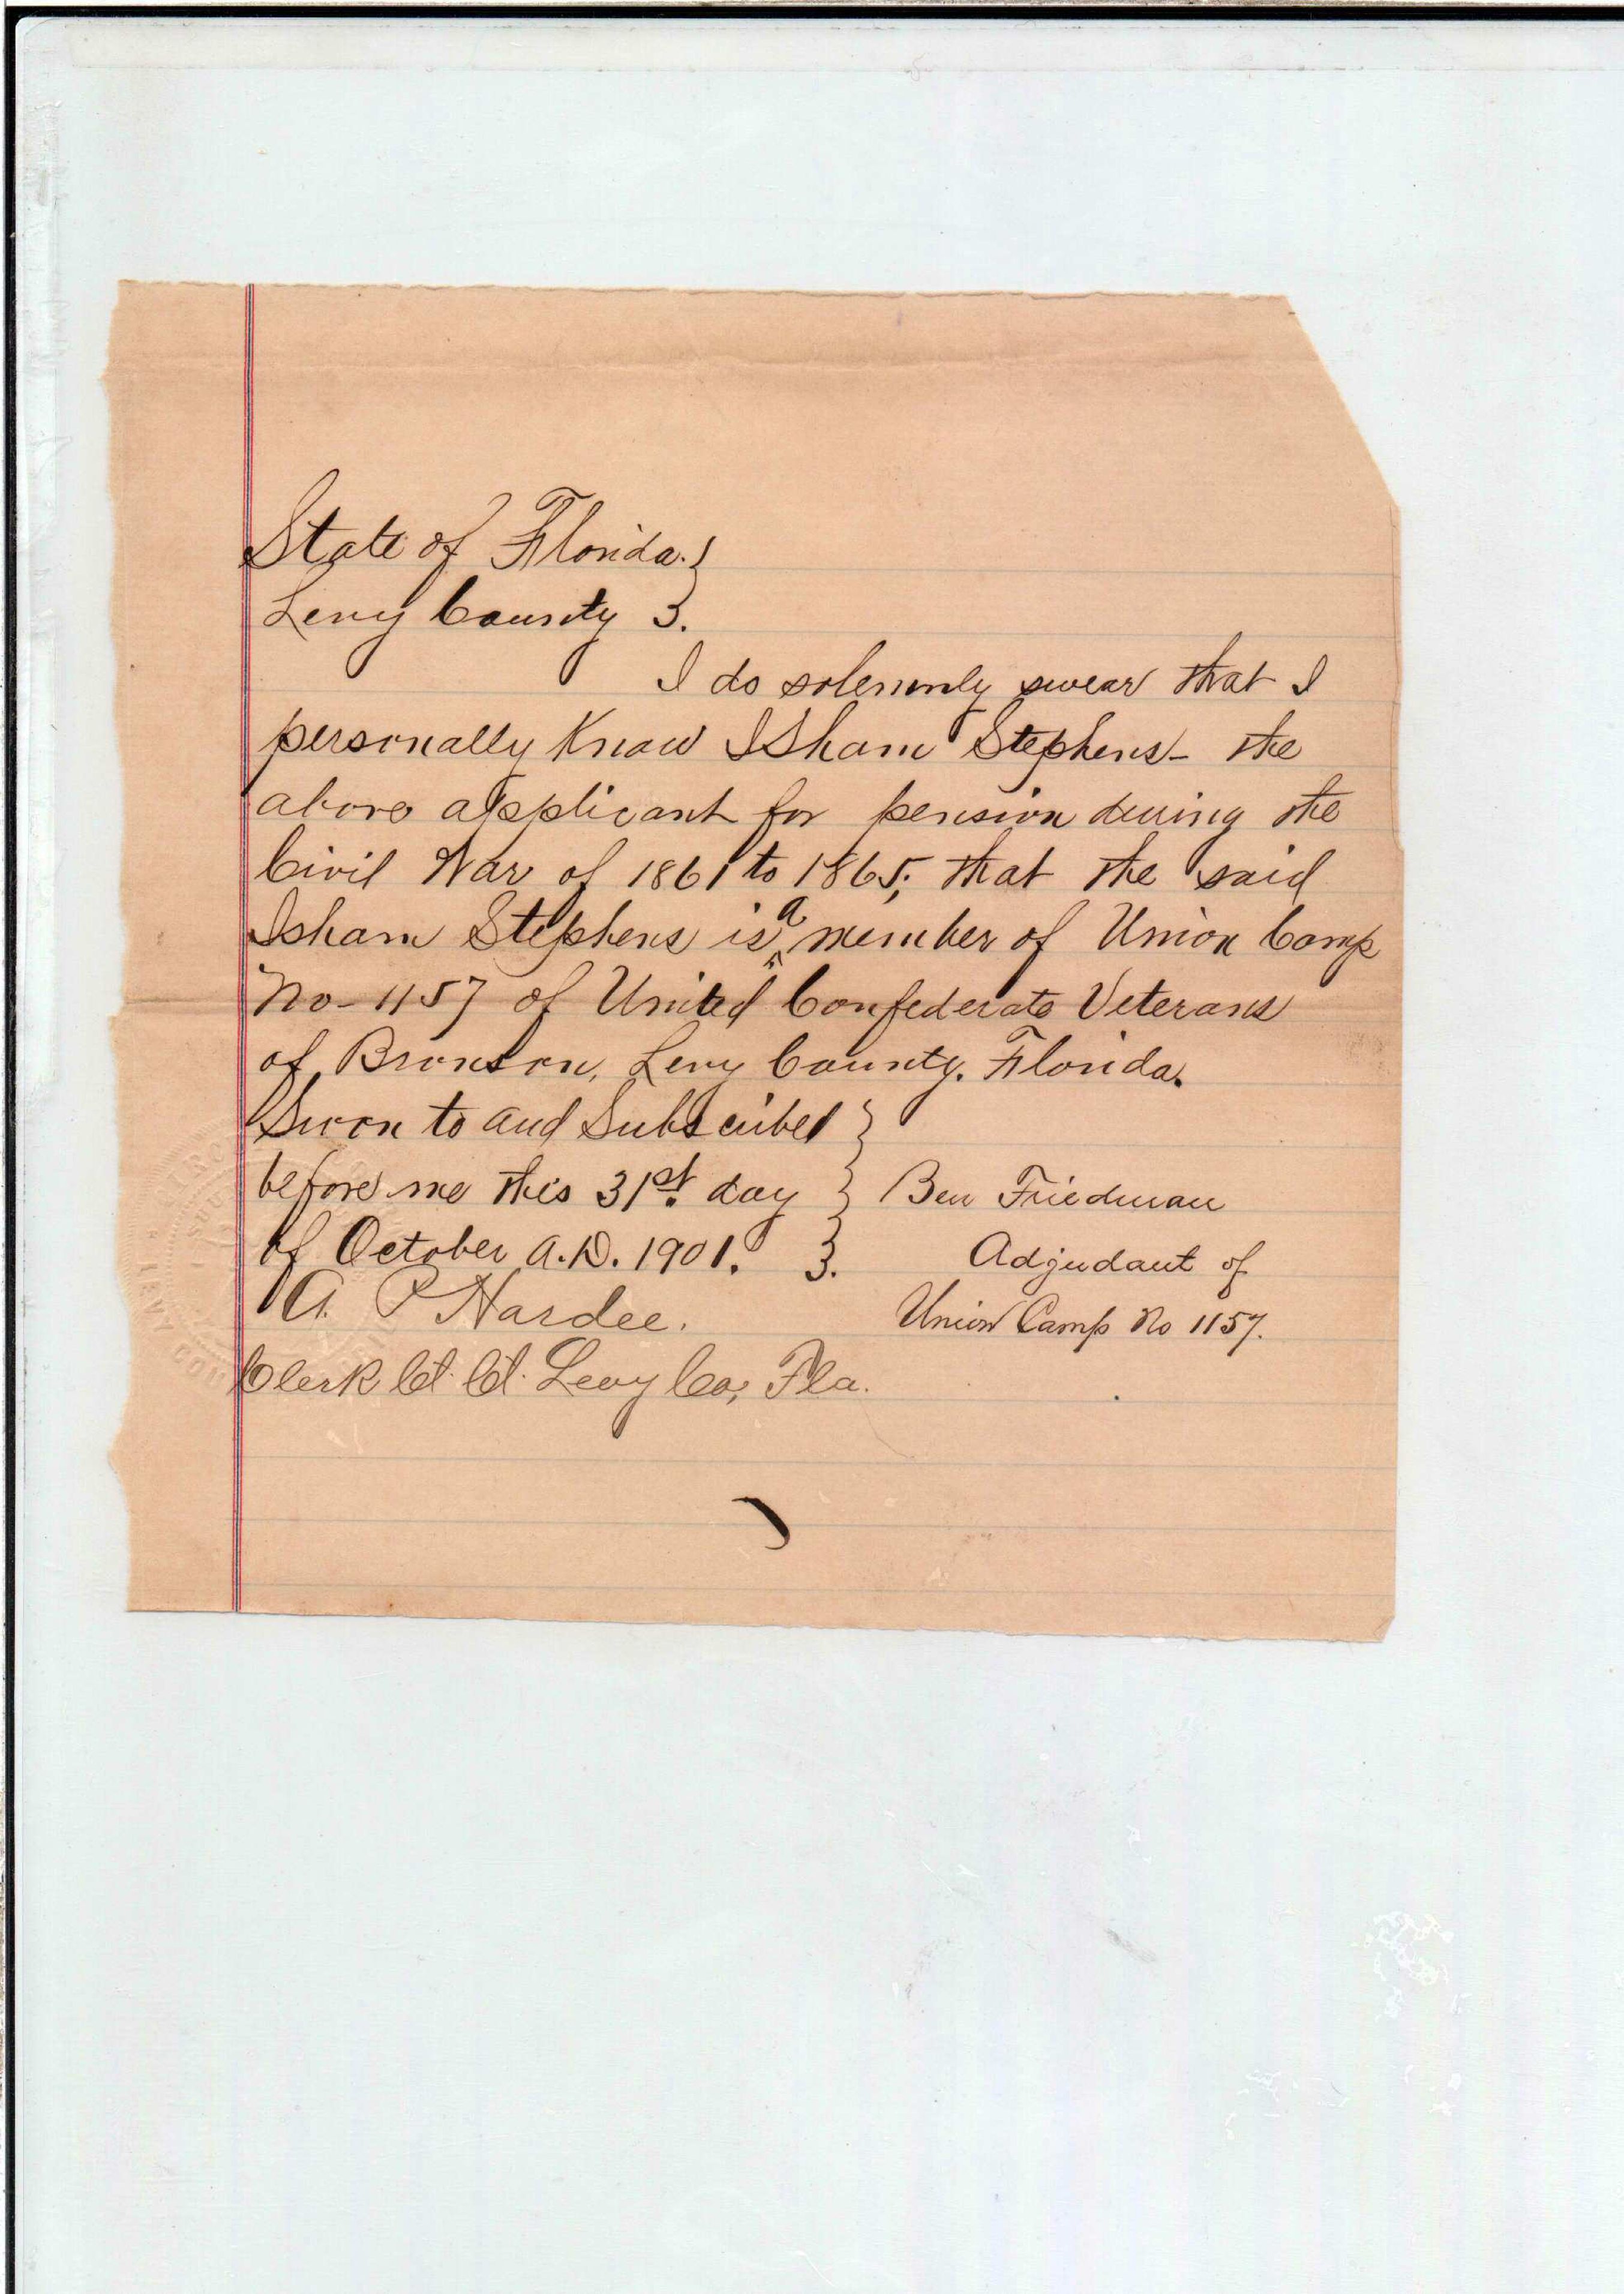 State of Florida. }
Levy County }.
I do solemnly swear that I
personally Know Isham Stephens - the
above applicant for pension during the
Civil War of 1861 to 1865; that the said
Isham Stephens is a member of Union Camp
No - 1157 of United Confederate Veterans
of Bronson, Levy County. Florida.
Sworn to and Subscribed }
before me this 31st. day } Ben Friedman
of October A.D. 1901. }. Adjudant of
A. P Hardee. Union Camp No 1157.
Clerk Ct. Ct. Levy Co, Fla.